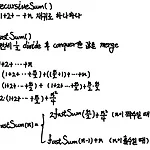 recursiveSum()
1+2+ … +n 재귀로 하나하나
fastSum()
반씩 ½ divide 후 conquer한 값을 merge
1+2+ … +n
(1+2+ … +n/2) + ((n/2+1)+ … +n)
(1+2+ … +n/2) + (1+2+ … +n/2 + n/2·n/2)
2·(1+2+ … +n/2) + n²/4
fastSum(n) = { 2fastSum(n/2) + n²/4 (n이 짝수일 때)
fastSum(n-1) + n (n이 홀수일 때)